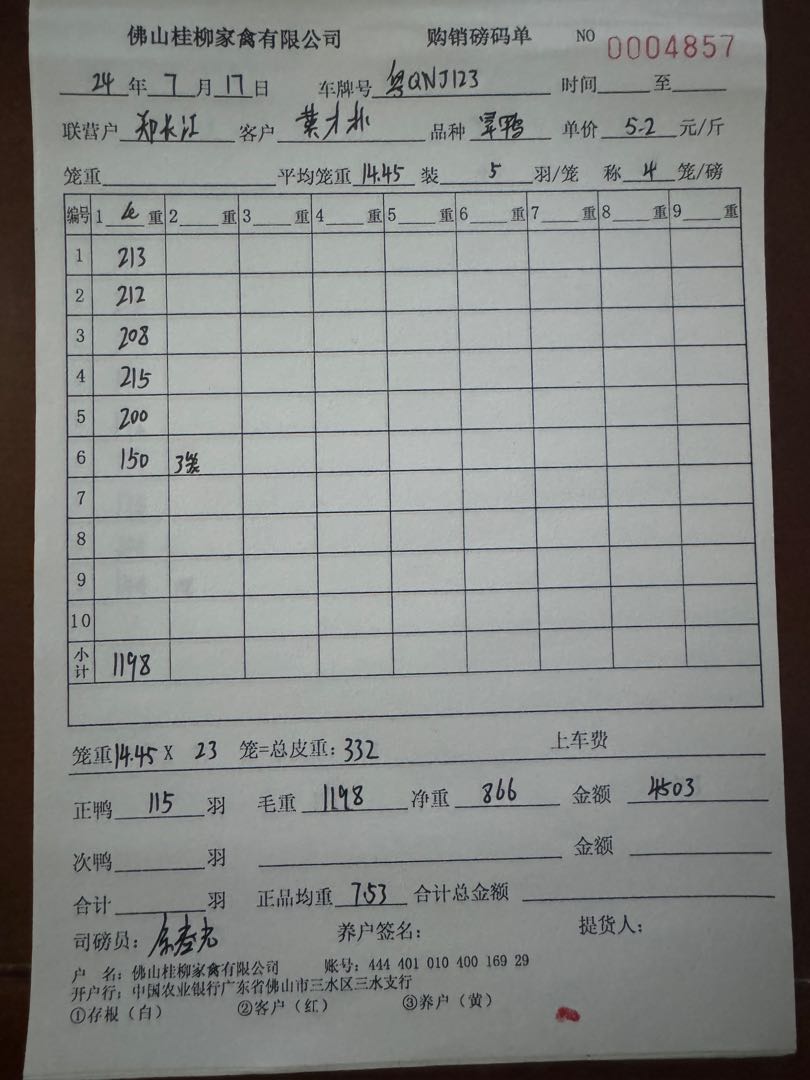 佛山桂柳家禽有限公司 购销磅码单 NO 0004857
24 年 7 月 17 日 车牌号 粤QNJ123 时间 至
联营户 郑长江 客户 品种 单价 5.2 元/斤
笼重 平均笼重 14.45 装 5 羽/笼 称 4 笼/磅
编号 1 重 2 重 3 重 4 重 5 重 6 重 7 重 8 重 9 重
1 213
2 212
3 208
4 215
5 200
6 150 3笼
7
8
9
10
小计 1198
笼重 14.45 X 23 笼=总皮重: 332 上车费
正鸭 115 羽 毛重 1198 净重 866 金额 4503
次鸭 羽 金额
合计 羽 正品均重 7.53 合计总金额
司磅员: 养户签名: 提货人:
户 名: 佛山桂柳家禽有限公司 账号: 444 401 010 400 169 29
开户行: 中国农业银行广东省佛山市三水区三水支行
①存根(白) ②客户(红) ③养户(黄)